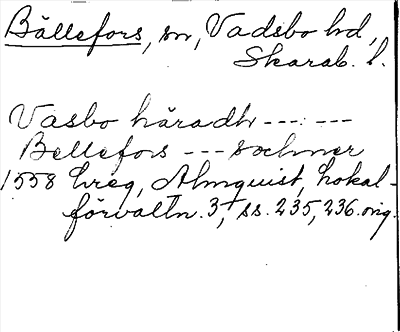 Bällefors, sn, Vadsbo hd,
Skarab. l.
Vasbo häradh --- ---
Bellefors --- sochner
1558 Lreg, Almquist, Lokal-
förvaltn. 3, ss. 235, 236. orig.